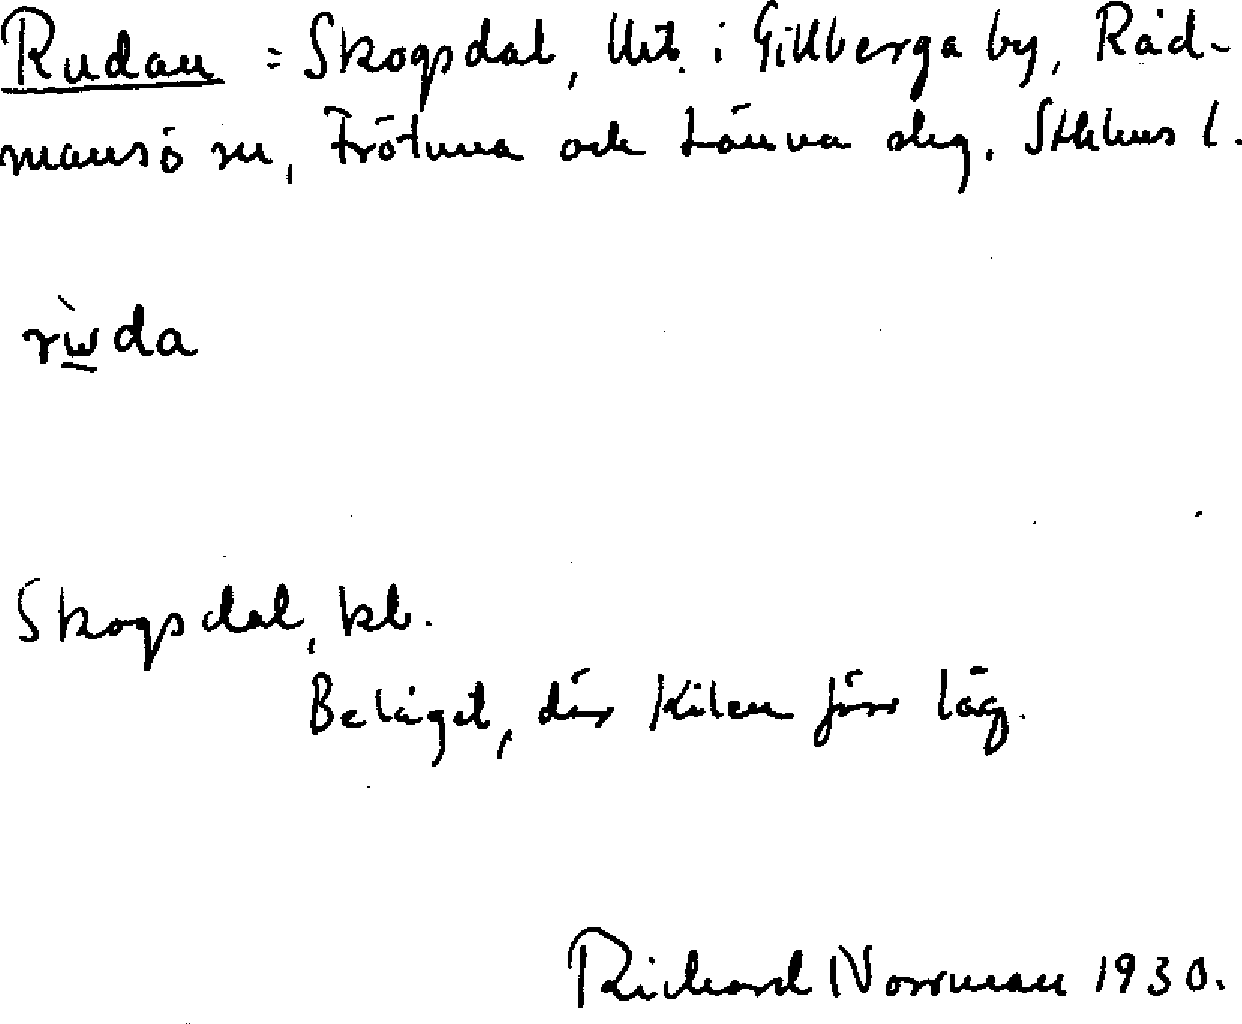 Rudan = Skogsdal, lht. i Gillberga by, Råd-
mansö sn, Frötuna och Länna slg. Sthlms l.
rẁda
Skogsdal, kb.
Beläget, där Kilen förr låg.
Richard Norrman 1930.